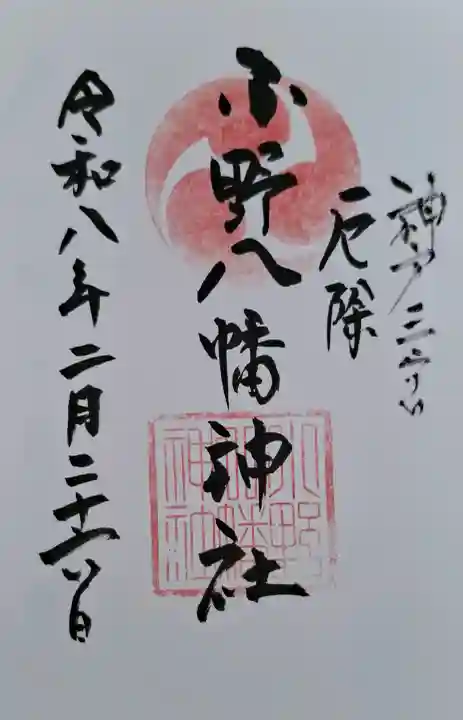 神戸三宮
厄除
小野八幡神社
小野
八幡
神社
令和八年二月二十六日